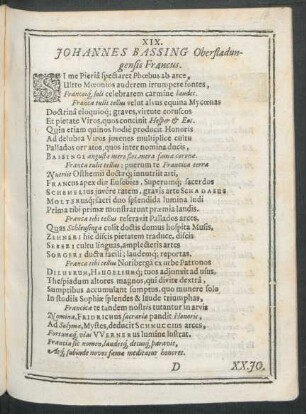 XIX.
JOHANNES BASSING Oberstadun-
gensis Francus.
SI me Pieriâ spectaret Phœbus ab arce,
Ultro Mæonios auderem irrumpere fontes,
Francuq́; soli celebratem carmine laudes.
Franca tulit tellus velut alvus equina Mycænas
Doctrinâ eloquioq́; graves, virtute coruscos
Et pietate Viros, quos concinit Hesper & Eus.
Quin etiam quinos hodiè producit. Honoris
Ad delubra Viros juvenes multiplice cultu
Pallados ornatos, quos inter nomina ducis,
BAISINGI
Franca tulit tellus; puerum te Franconica terra
Nutriit Osthemii doctæq́; innutriit arti,
FRANCUS apex dùm Eusebies, Superumq́; sacerdos
SCHEMELIUS juvêre ratem, gravis arte SCHADÆUS
MOLTERUSq́; facti duo splendida lumina ludi
Prima tibi primæ monstrarunt præmia laudis.
Franca tibi tellus reseravit Pallados arces,
Quas Schleusinga colit doctis domus hospita Musis.
ZEHNERI hîc discis pietatem traduce, disceis
SEBERI cultu linguas, amplecteris artes
SORGERI ductu facili; laudemq́; reportas.
Franca tibi tellus Noribergâ ex urbe Patronos
DILHERUM, HAUGELIUMQ́; tuos adjunxit ad usus.
Thespiadum altores magnos, qui divite dextrâ,
Sumptibus accumulant sumptus, quo munere solo
In studiis Sophiæ splendes & laude triumphas,
Francica te tandem nostris turantur in arvis
Nomina, FRIDRICUS sacraria pandit Honoris,
Ad Solymæ, Mystes, deducit SCHMUCCIUS arces,
Fortunæq́; viai VVERNERUS lumine lustrat.
Francia sic nomen, lauderq́, decusq́, paravit,
Atq́; subinde novos famæ meditatur honores.
D XX.JO.